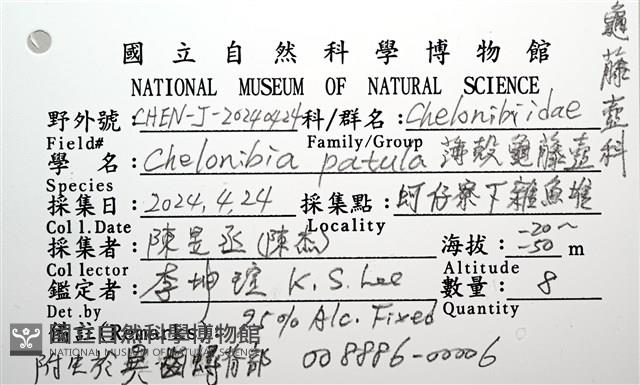 國立自然科學博物館
NATIONAL MUSEUM OF NATURAL SCIENCE
龜藤壺科
野外號:CHEN-J-20240424 科/群名:Chelonibiidae
Field# Family/Group
學名:Chelonibia patula 薄殼龜藤壺
Species
採集日:2024.4.24 採集點:蚵仔寮下雜魚堆
Col l.Date Locality
採集者:陳昱丞(陳杰) 海拔:-20~-50 m
Col lector Altitude
鑑定者:李坤瑄 K.S.Lee 數量:8
Det.by Quantity
95% Alc. Fixed
Remarks:
國立自然科學博物館
NATIONAL MUSEUM OF NATURAL SCIENCE
附生於 背部 008886-00006